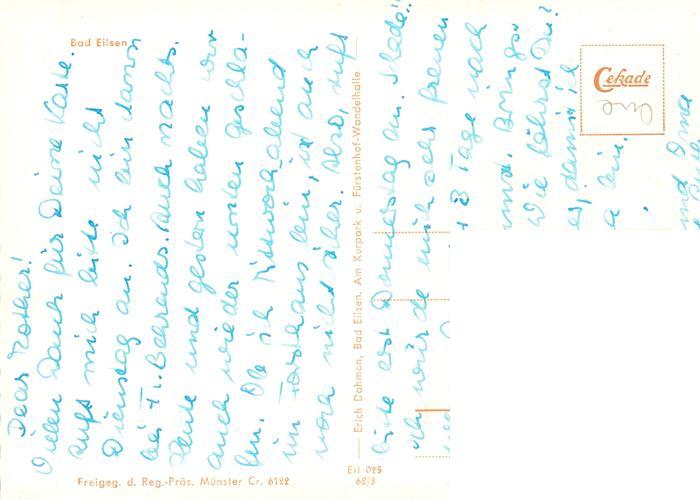 Bad Eilsen
Dear Mother!
Vielen Dank für Deine Karte.
Ruft mich bitte nicht
Dienstag an. Ich bin dann
bei Fr. Behrends. Auch nachts.
Heute und gestern haben wir
auch wieder unten geschla-
fen. Ob ich Mittwochabend
im Forsthaus bin, ist auch
noch nicht sicher. Also, ruft
bitte erst Donnerstag an. Schade!!
Ich würde mich sehr freuen
3 Tage nach
und. Bringst
Wie fährst Du?
es, damit ich
a bin.
und Oma
Erich Dahman, Bad Eilsen. Am Kurpark u. Fürstenhof-Wandelhalle
Cekade
Freigeg. d. Reg.-Präs. Münster Cr. 6122
Eil 025
62/3